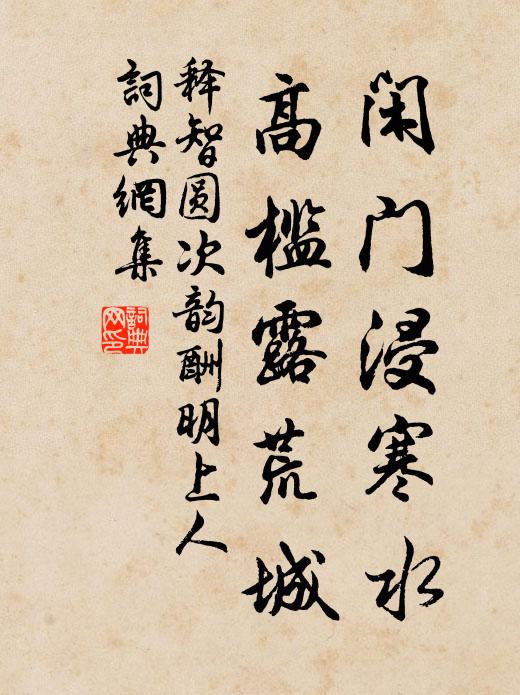 闲门浸寒水
高槛露荒城
释智圆次韵酬明上人
詞典網集
詞典网印